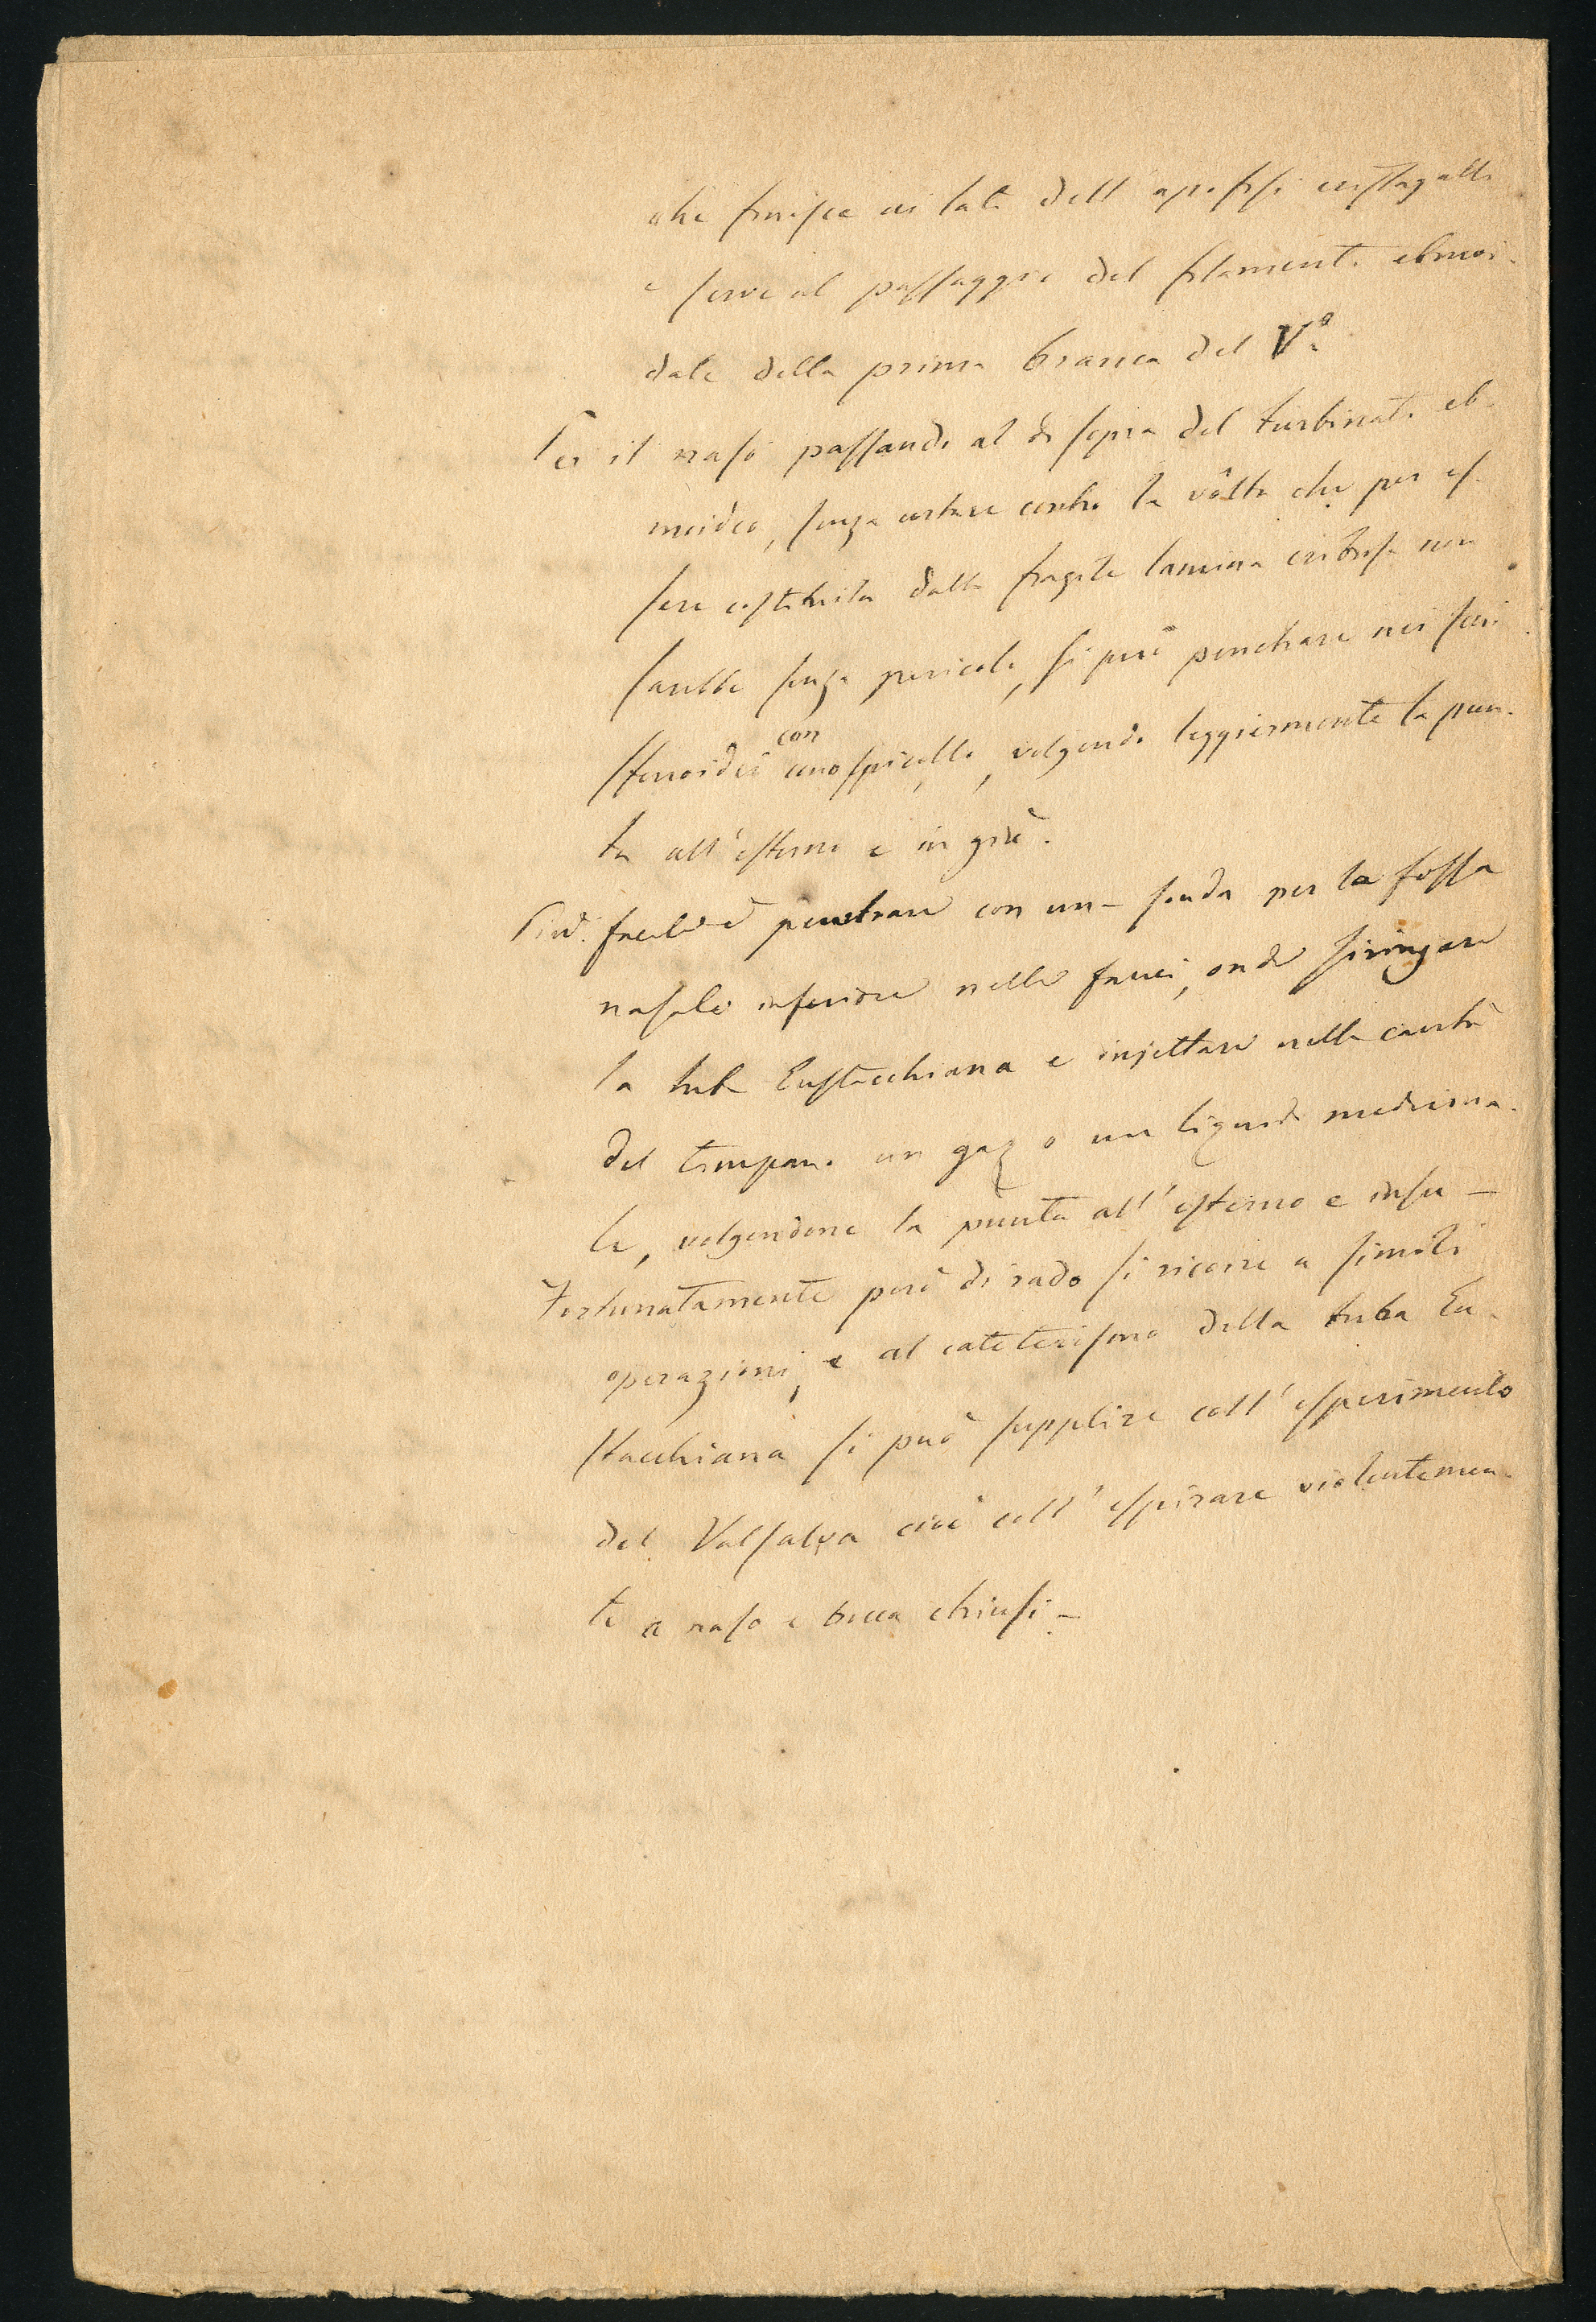 che finisce ai lati dell'apofisi cristagalli
e serve al passaggio del filamento etmoi-
dale della prima branca del V.º
Per il naso passando al di sopra del turbinato et-
moideo, senza urtare contro la vôlta che per es-
sere costituita dalla fragile lamina cribrosa non
sarebbe senza pericolo, si può penetrare nei seni
sfenoidei con uno specillo, volgendo leggiermente la pun-
ta all'esterno e in giù.
Più facile è penetrare con una sonda per la fossa
nasale inferiore nelle fauci, onde siringare
la tuba Eustacchiana e injettare nella cavità
del timpano un gaz o un liquido medicina-
le, volgendone la punta all'esterno e in su –
Fortunatamente però di rado si ricorre a simili
operazioni, e al cateterismo della tuba Eu-
stacchiana si può supplire coll'esperimento
del Valsalva cioè coll'espirare violentemen-
te a naso e bocca chiusi –